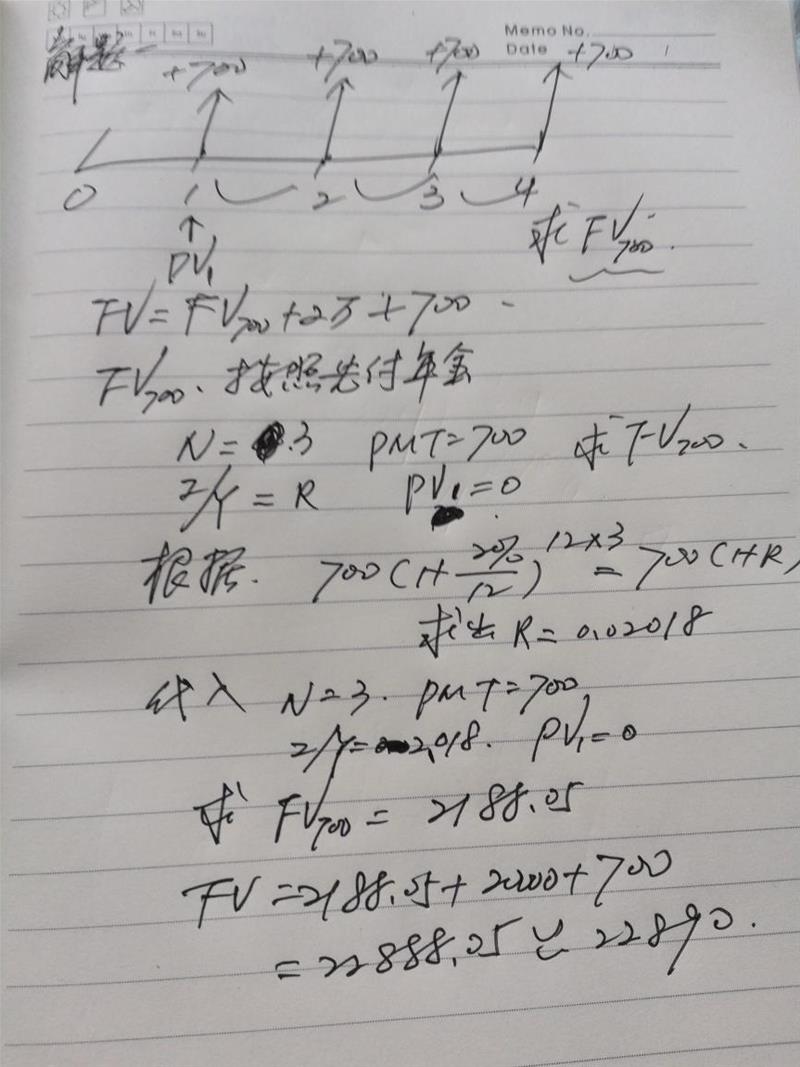 Memo No.
Date
解题一
+700 +700 +700 +700
0 1 2 3 4
↑
PV₁
求 FV₇₀₀.
FV = FV₇₀₀ + 2万 + 700
FV₇₀₀、按照先付年金
N = 3 PMT = 700 求 FV₇₀₀、
I/Y = R PV₁ = 0
根据. 700(1+20%/12)^12×3 = 700(1+R)
求出 R = 0.02018
代入 N = 3. PMT = 700
I/Y = 2.018. PV₁ = 0
求 FV₇₀₀ = 2188.05
FV = 2188.05 + 20000 + 700
= 22888.05 ≌ 22890.